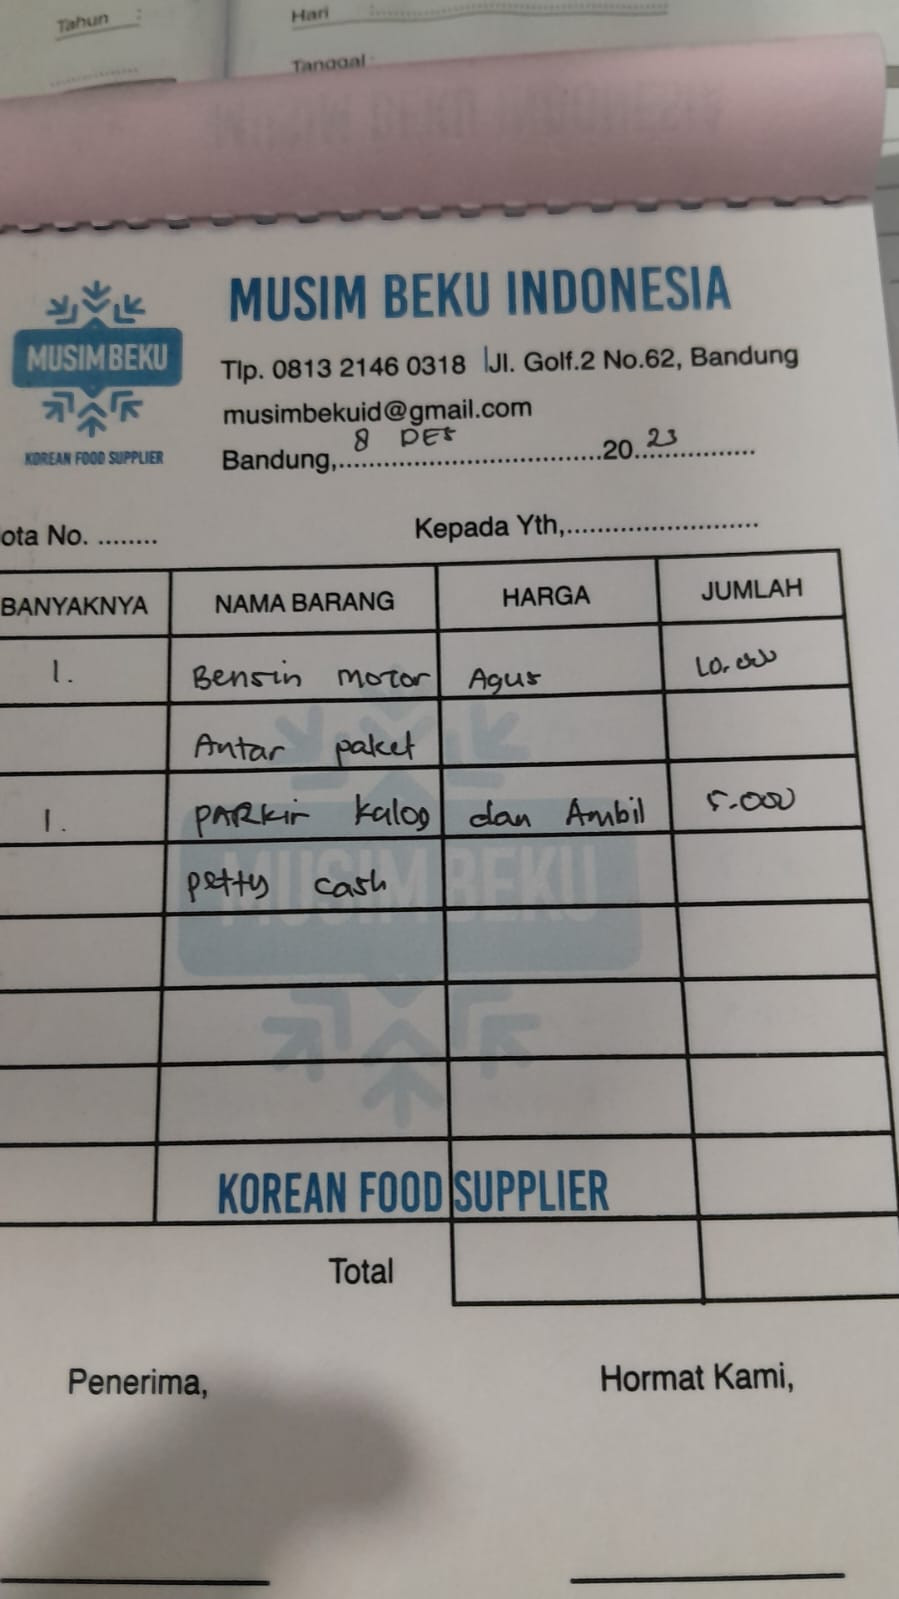 Tahun :
Hari :
Tanggal :
MUSIM BEKU INDONESIA
MUSIM BEKU
KOREAN FOOD SUPPLIER
Tlp. 0813 2146 0318 Jl. Golf.2 No.62, Bandung
musimbekuid@gmail.com
Bandung, 8 DES 2023
ota No. ........
Kepada Yth,..........................
BANYAKNYA NAMA BARANG HARGA JUMLAH
1. Bensin motor Agus 10.000
Antar paket
1. PARKir kalog dan Ambil 5.000
petty cash
MUSIM BEKU
KOREAN FOOD SUPPLIER
Total
Penerima,
Hormat Kami,